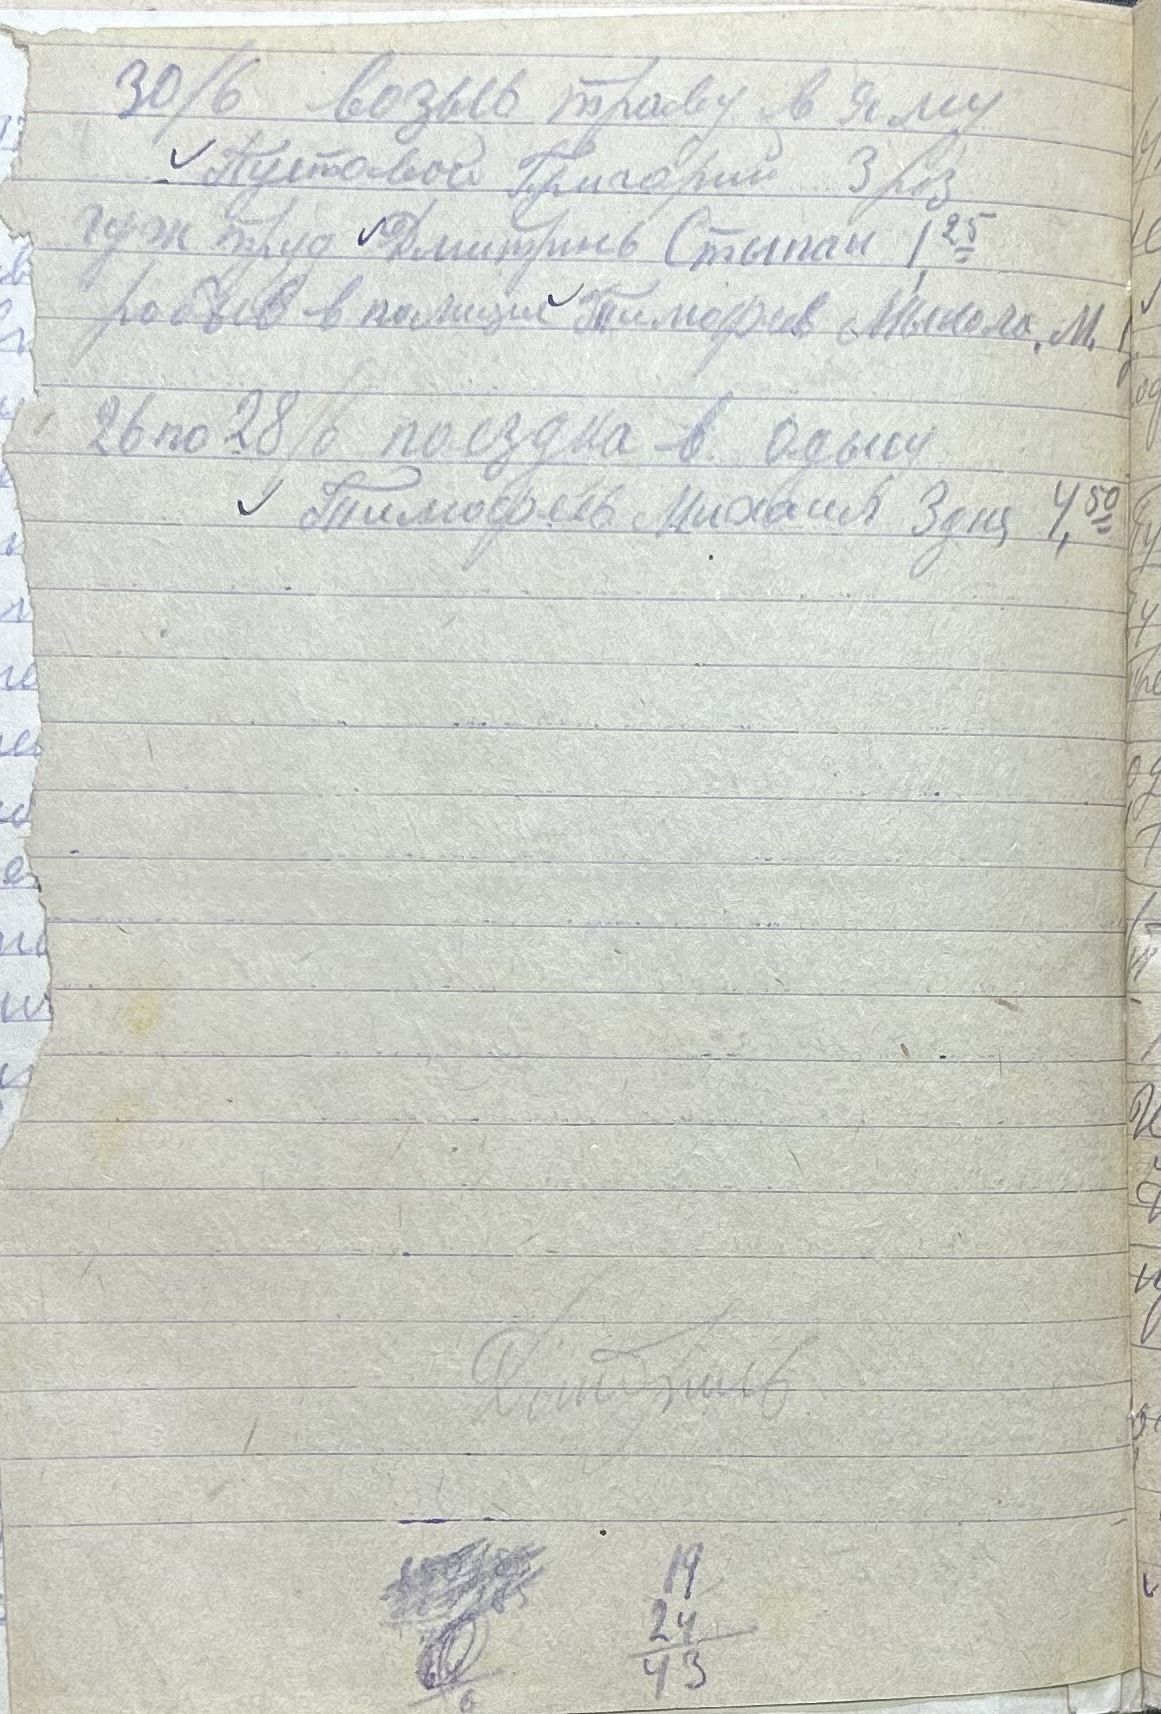 30/6 возыв траву в яму
✓ Пустовой Григорий 3 роз
гуж труд ✓ Дмитринь Стыпан 1,25
робыв в полиции ✓ Тимофеев Мыкола. М.
26 по 28/6 поездка в Одысу
✓ Тимофеев Михаил 3 дня 4,50
19
24
43